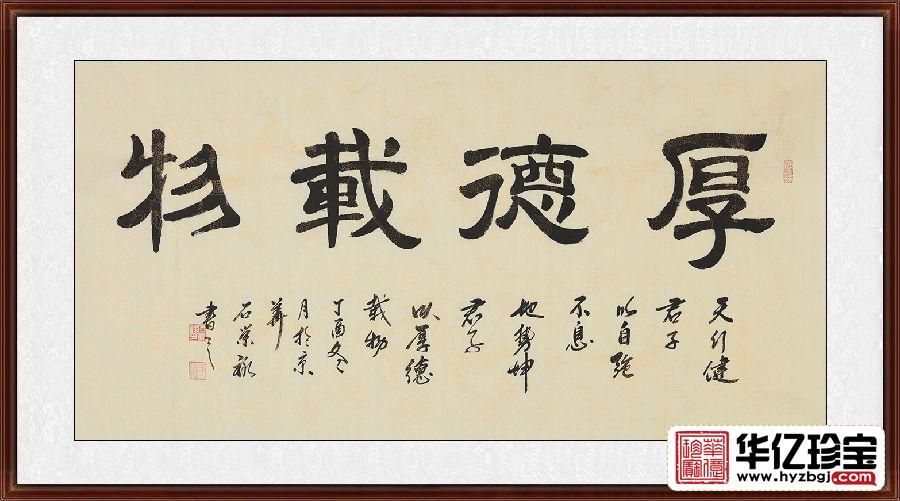 厚德載物
天行健
君子
以自強
不息
地勢坤
君子
以厚德
載物
丁酉冬
月於京
華
石榮祿
書之
華億珍寶
华亿珍宝
www.hyzbgj.com